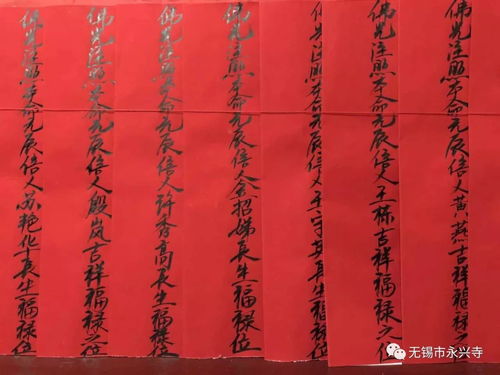 佛光注照本命元辰信人黄燕吉祥福禄位
佛光注照本命元辰信人王栋吉祥福禄之位
佛光注照本命元辰信人王守英長生福禄位
佛光注照本命元辰信人金招娣長生福禄位
佛光注照本命元辰信人许秀高長生福禄位
佛光注照本命元辰信人殷岚吉祥福禄之位
佛光注照本命元辰信人苏艳华長生福禄位
无锡市永兴寺